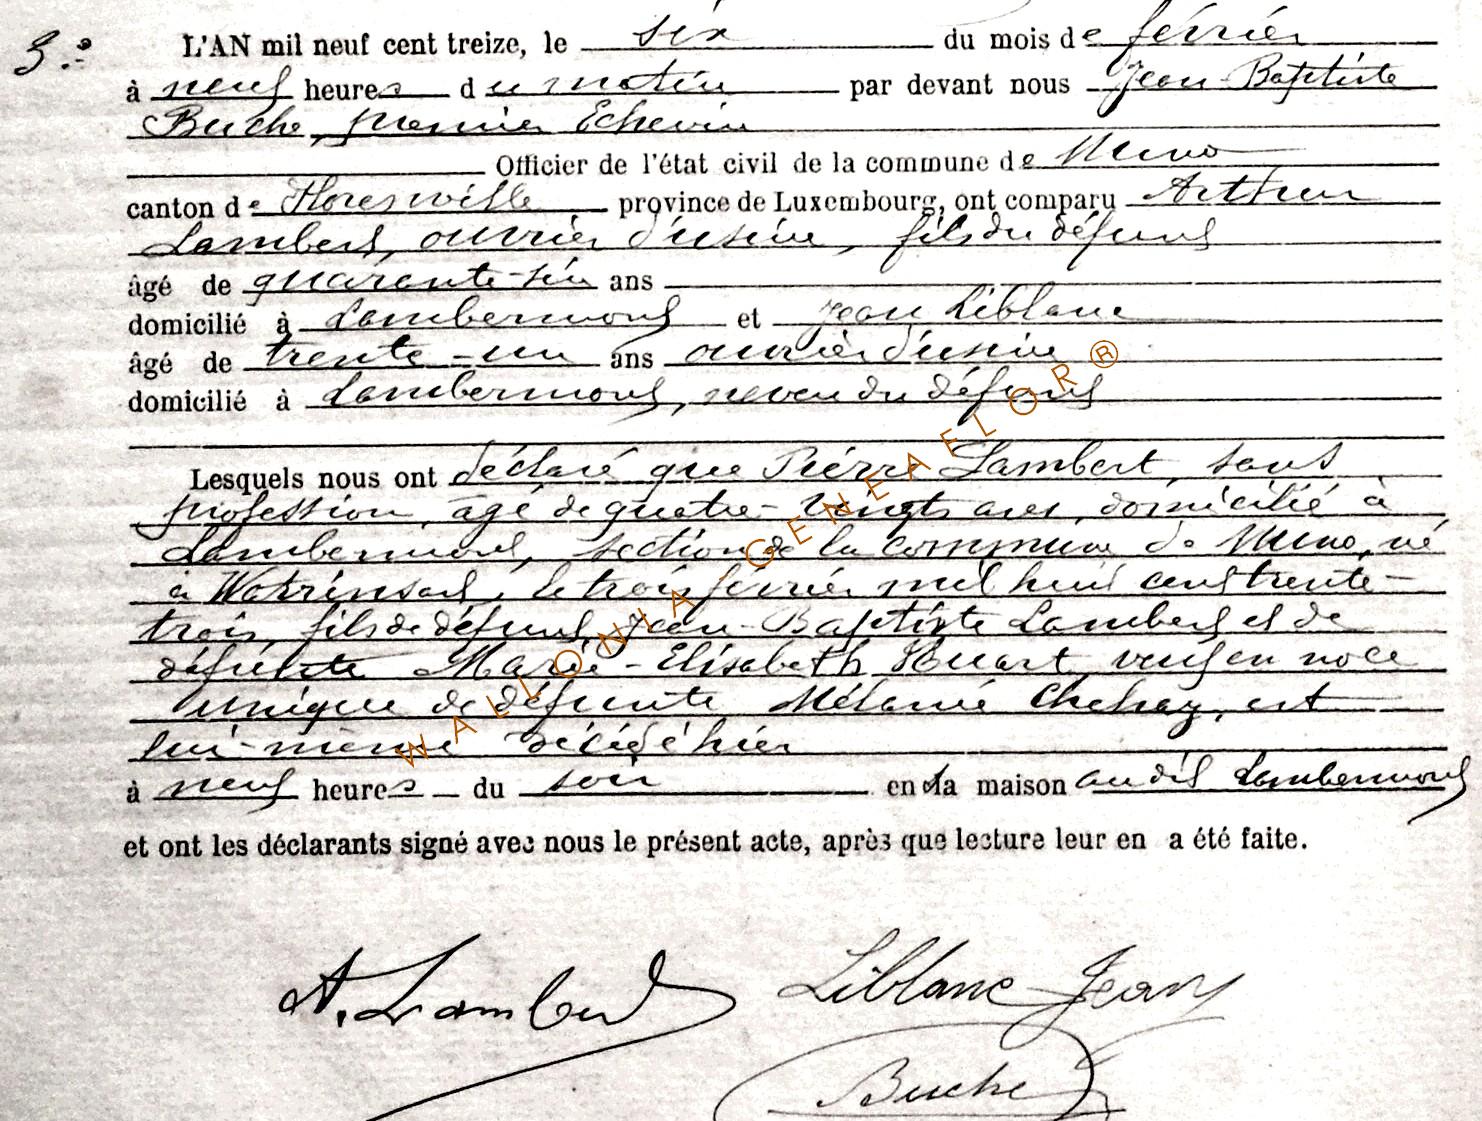 3.°
L'AN mil neuf cent treize, le six du mois de février
à neuf heures du matin par devant nous Jean-Baptiste
Buche, premier Echevin
Officier de l'état civil de la commune de Muno
canton de Florenville province de Luxembourg, ont comparu Arthur
Lambert, ouvrier d'usine, fils du défunt
âgé de quarante-six ans
domicilié à Lambermont et Jean Liblanc
âgé de trente-un ans ouvrier d'usine
domicilié à Lambermont, neveu du défunt
Lesquels nous ont déclaré que Pierre Lambert, sans
profession, âgé de quatre-vingts ans, domicilié à
Lambermont, section de la commune de Muno, né
à Watrinsart, le trois février mil huit cent trente-
trois, fils de défunt Jean-Baptiste Lambert et de
défunte Marie-Elisabeth Huart veuf en noce
unique de défunte Mélanie Chehay, est
lui-même décédé hier
à neuf heures du soir en sa maison au dit Lambermont
et ont les déclarants signé avec nous le présent acte, après que lecture leur en a été faite.
A. Lambert Liblanc Jean
Buche
WALLONIA-GENEAELOR®